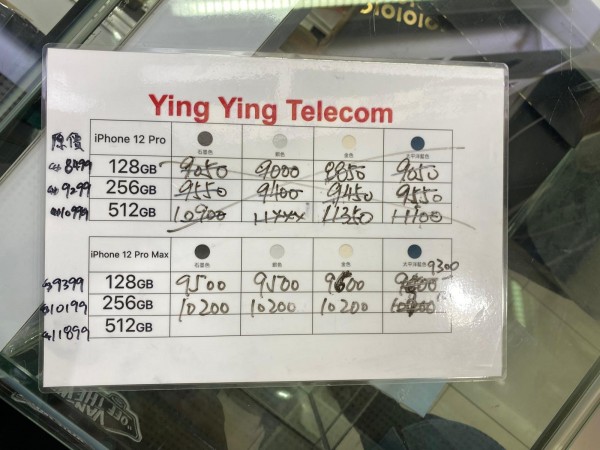 Ying Ying Telecom
原價 iPhone 12 Pro 石墨色 銀色 金色 太平洋藍色
8499 128GB 9050 9000 8850 9050
9299 256GB 9550 9400 9450 9550
10999 512GB 10900 11xxx 11350 11100
iPhone 12 Pro Max 石墨色 銀色 金色 太平洋藍色 9300
9399 128GB 9500 9500 9600
10199 256GB 10200 10200 10200
11899 512GB
VANS
"OFF THE